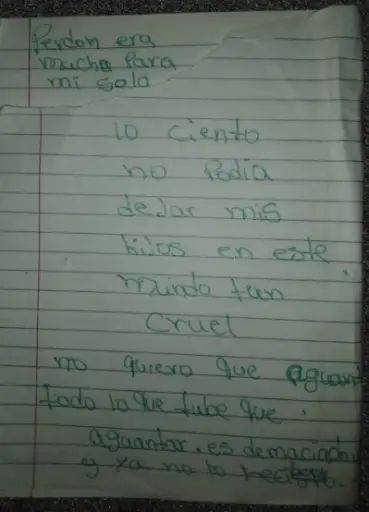 Perdon era
mucha Para
mi sola
lo ciento
no Podia
deJar mis
hiJos en este
mundo tan
Cruel
no quiero que aguant
todo lo que tube que
aguantar. es demaciado
y ya no lo